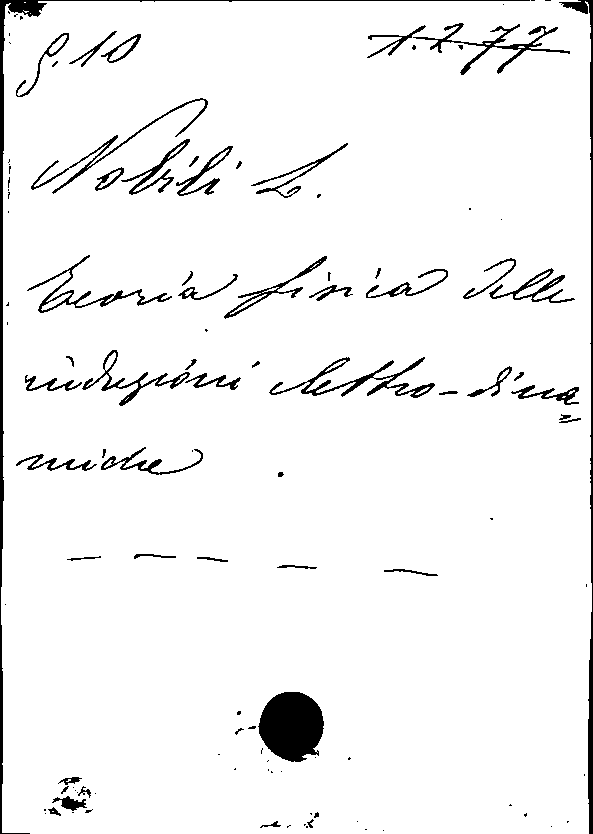 g. 10 1.2.77
Nobili L.
Teoria fisica delle
induzioni elettro-dina=
miche .